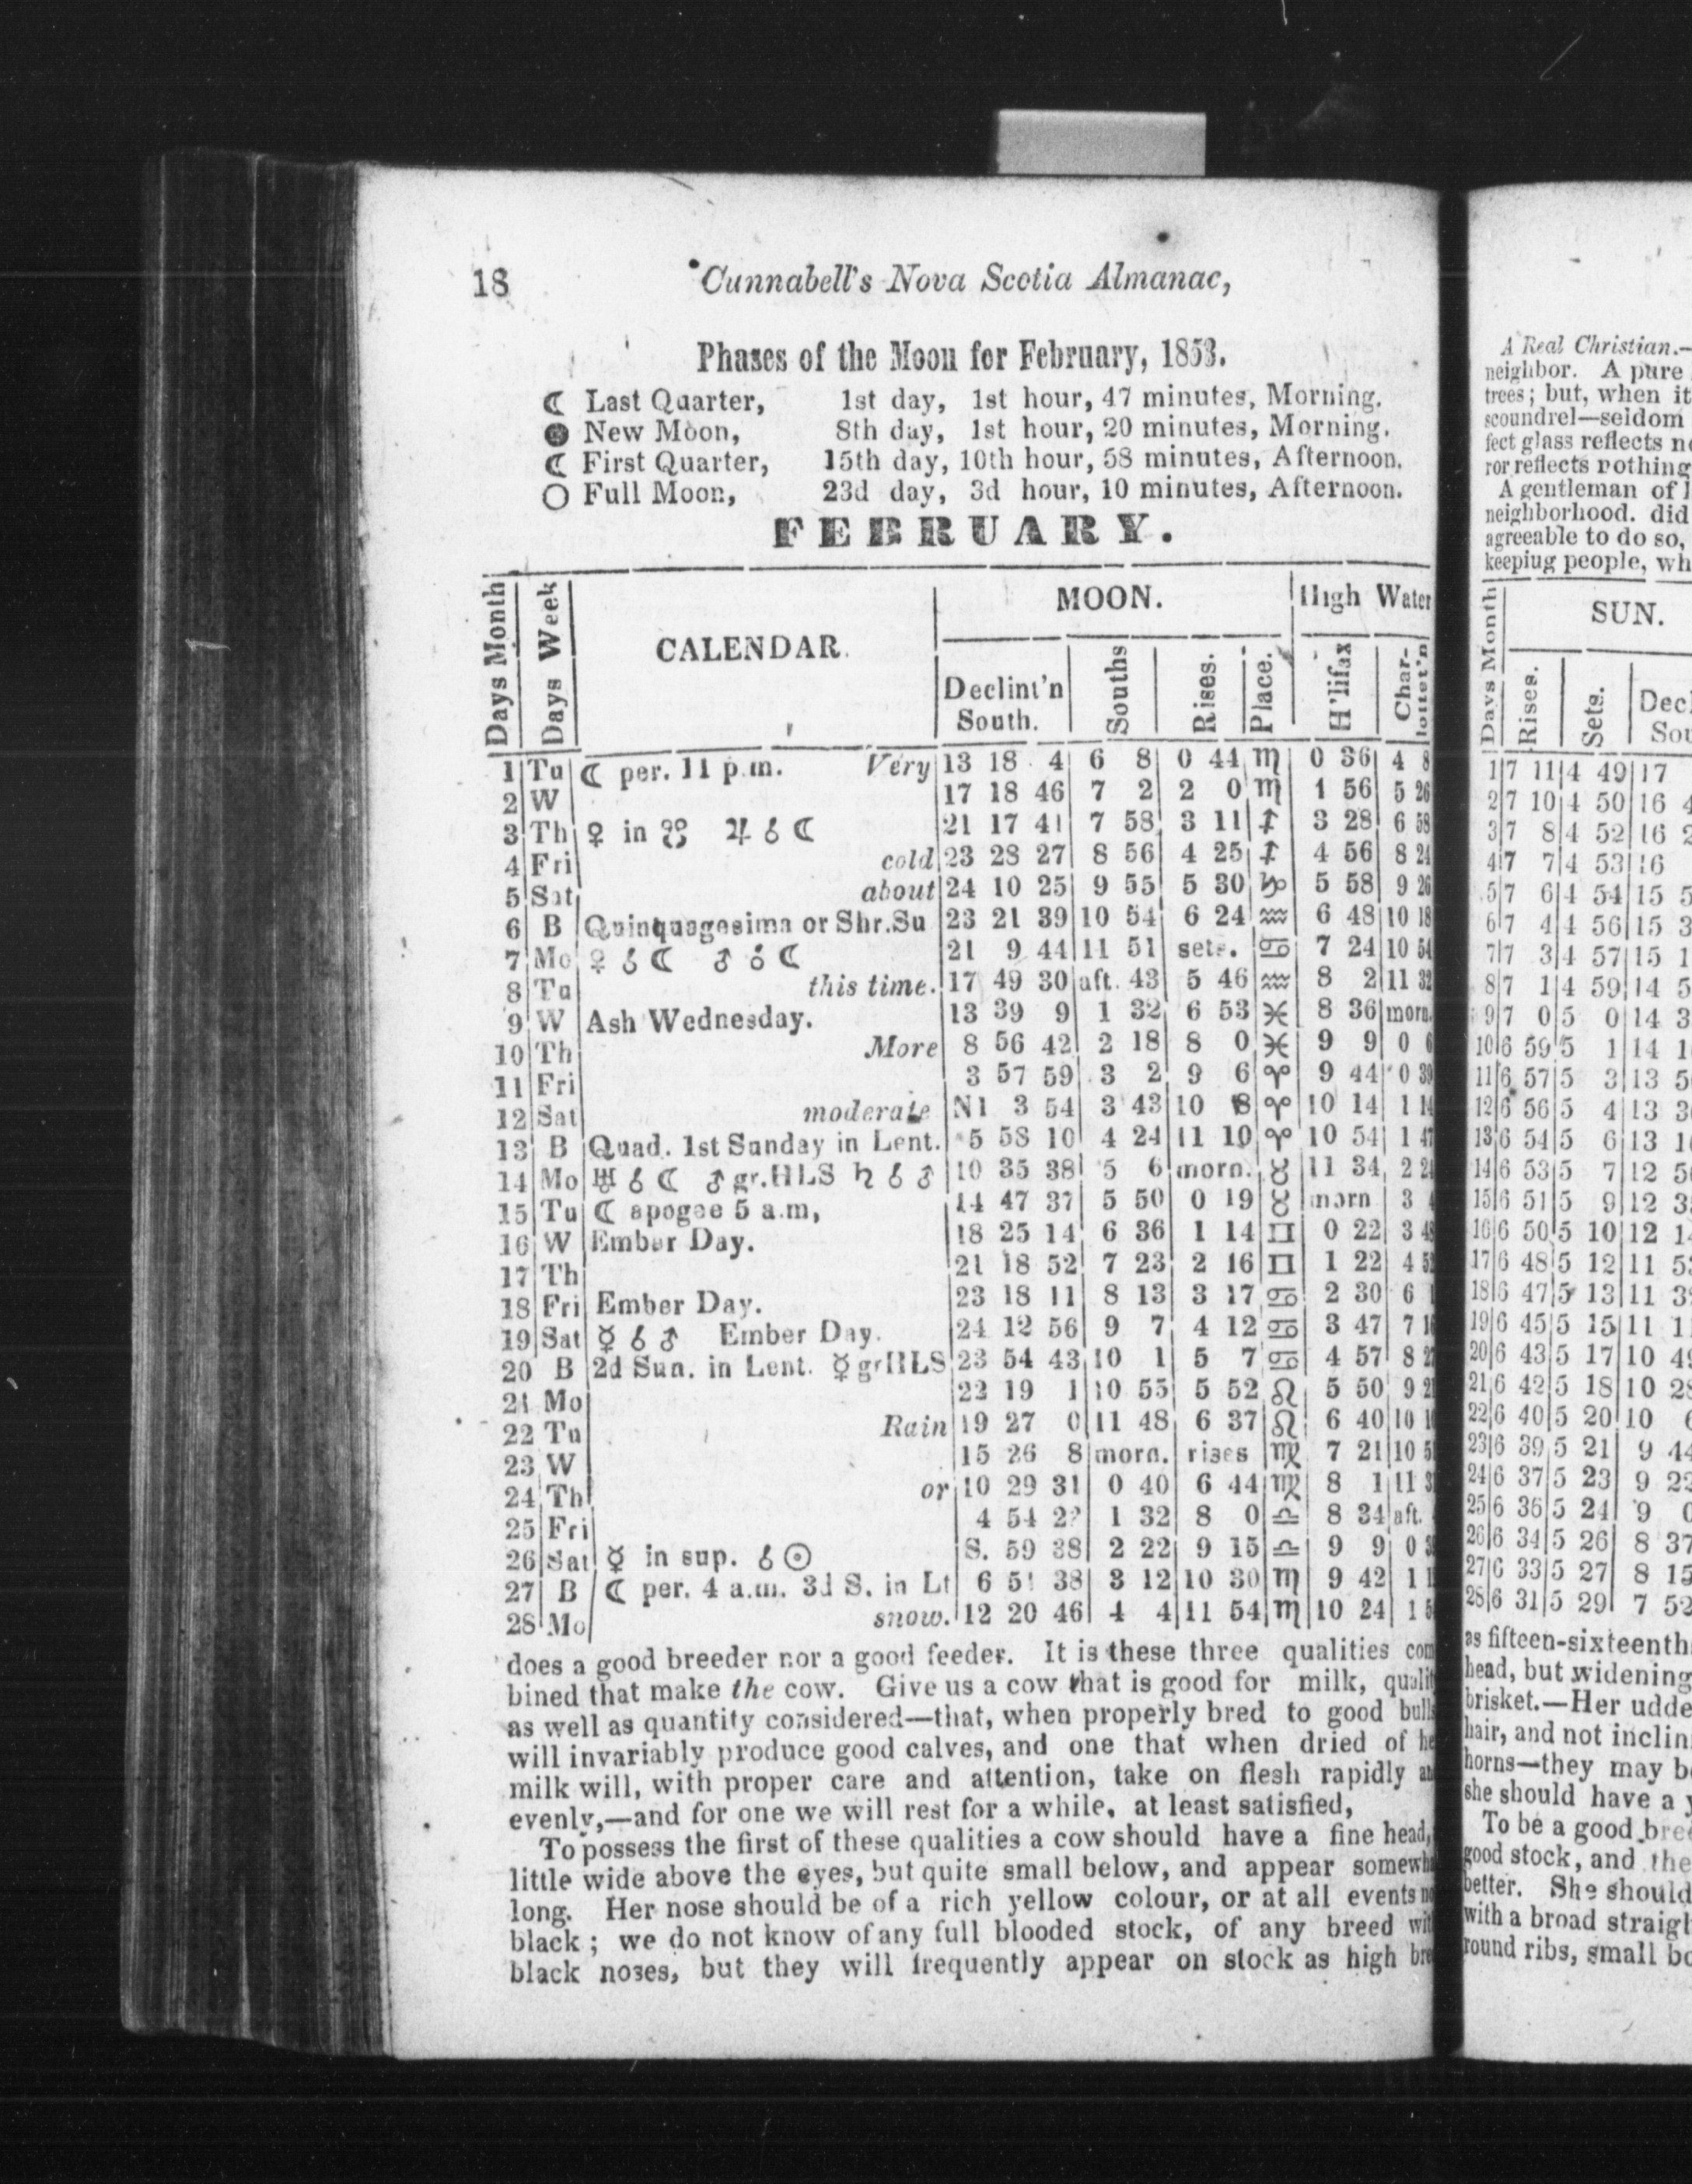 18 Cunnabell's Nova Scotia Almanac,
Phases of the Moon for February, 1853.
☾ Last Quarter, 1st day, 1st hour, 47 minutes, Morning.
● New Moon, 8th day, 1st hour, 20 minutes, Morning.
☾ First Quarter, 15th day, 10th hour, 58 minutes, Afternoon.
○ Full Moon, 23d day, 3d hour, 10 minutes, Afternoon.
FEBRUARY.
Days Month Days Week CALENDAR. MOON. High Water
Declint'n South. Souths Rises. Place. H'lifax Char-lottet'n
1 Tu ☾ per. 11 p.m. Very 13 18 4 6 8 0 44 ♏ 0 36 4 8
2 W 17 18 46 7 2 2 0 ♏ 1 56 5 26
3 Th ♀ in ☋ ♃ ☌ ☾ 21 17 41 7 58 3 11 ♐ 3 28 6 58
4 Fri cold 23 28 27 8 56 4 25 ♐ 4 56 8 24
5 Sat about 24 10 25 9 55 5 30 ♑ 5 58 9 26
6 B Quinquagesima or Shr.Su 23 21 39 10 54 6 24 ♒ 6 48 10 18
7 Mo ♀ ☌ ☾ ♂ ☌ ☾ 21 9 44 11 51 sets. ♋ 7 24 10 54
8 Tu this time. 17 49 30 aft. 43 5 46 ♒ 8 2 11 32
9 W Ash Wednesday. 13 39 9 1 32 6 53 ♓ 8 36 morn.
10 Th More 8 56 42 2 18 8 0 ♓ 9 9 0 6
11 Fri 3 57 59 3 2 9 6 ♈ 9 44 0 39
12 Sat moderate N1 3 54 3 43 10 8 ♈ 10 14 1 14
13 B Quad. 1st Sunday in Lent. 5 58 10 4 24 11 10 ♈ 10 54 1 47
14 Mo ♅ ☌ ☾ ♂ gr.HLS ♄ ☌ ♂ 10 35 38 5 6 morn. ♉ 11 34 2 24
15 Tu ☾ apogee 5 a.m, 14 47 37 5 50 0 19 ♉ morn 3 4
16 W Ember Day. 18 25 14 6 36 1 14 ♊ 0 22 3 48
17 Th 21 18 52 7 23 2 16 ♊ 1 22 4 52
18 Fri Ember Day. 23 18 11 8 13 3 17 ♋ 2 30 6
19 Sat ☿ ☌ ♂ Ember Day. 24 12 56 9 7 4 12 ♋ 3 47 7
20 B 2d Sun. in Lent. ☿ grHLS 23 54 43 10 1 5 7 ♋ 4 57 8
21 Mo 22 19 1 10 55 5 52 ♌ 5 50 9
22 Tu Rain 19 27 0 11 48 6 37 ♌ 6 40 10
23 W 15 26 8 morn. rises ♍ 7 21 10
24 Th or 10 29 31 0 40 6 44 ♍ 8 1 11
25 Fri 4 54 1 32 8 0 ♎ 8 34 aft.
26 Sat ☿ in sup. ☌ ☉ S. 59 38 2 22 9 15 ♎ 9 9 0
27 B ☾ per. 4 a.m. 3d S. in Lt 6 51 38 3 12 10 30 ♏ 9 42 1
28 Mo snow. 12 20 46 4 4 11 54 ♏ 10 24 1
does a good breeder nor a good feeder. It is these three qualities com
bined that make the cow. Give us a cow that is good for milk, qualit
as well as quantity considered—that, when properly bred to good bulls
will invariably produce good calves, and one that when dried of he
milk will, with proper care and attention, take on flesh rapidly an
evenly,—and for one we will rest for a while, at least satisfied,
To possess the first of these qualities a cow should have a fine head,
little wide above the eyes, but quite small below, and appear somewha
long. Her nose should be of a rich yellow colour, or at all events no
black; we do not know of any full blooded stock, of any breed wit
black noses, but they will frequently appear on stock as high bre
A Real Christian.—
neighbor. A pure
trees; but, when it
scoundrel—seldom
fect glass reflects n
ror reflects nothing
A gentleman of
neighborhood. did
agreeable to do so,
keepiug people, wh
Days Month SUN.
Rises. Sets. Decl Sou
1 7 11 4 49 17
2 7 10 4 50 16 4
3 7 8 4 52 16 2
4 7 7 4 53 16
5 7 6 4 54 15 5
6 7 4 4 56 15 3
7 7 3 4 57 15 1
8 7 1 4 59 14 5
9 7 0 5 0 14 3
10 6 59 5 1 14 1
11 6 57 5 3 13 5
12 6 56 5 4 13 3
13 6 54 5 6 13 1
14 6 53 5 7 12 5
15 6 51 5 9 12 3
16 6 50 5 10 12 1
17 6 48 5 12 11 5
18 6 47 5 13 11 3
19 6 45 5 15 11 1
20 6 43 5 17 10 4
21 6 42 5 18 10 2
22 6 40 5 20 10
23 6 39 5 21 9 44
24 6 37 5 23 9 22
25 6 36 5 24 9 0
26 6 34 5 26 8 37
27 6 33 5 27 8 15
28 6 31 5 29 7 52
as fifteen-sixteenth
head, but widening
brisket.—Her udde
hair, and not inclin
horns—they may b
she should have a
To be a good bre
good stock, and the
better. She should
with a broad straigh
round ribs, small bo